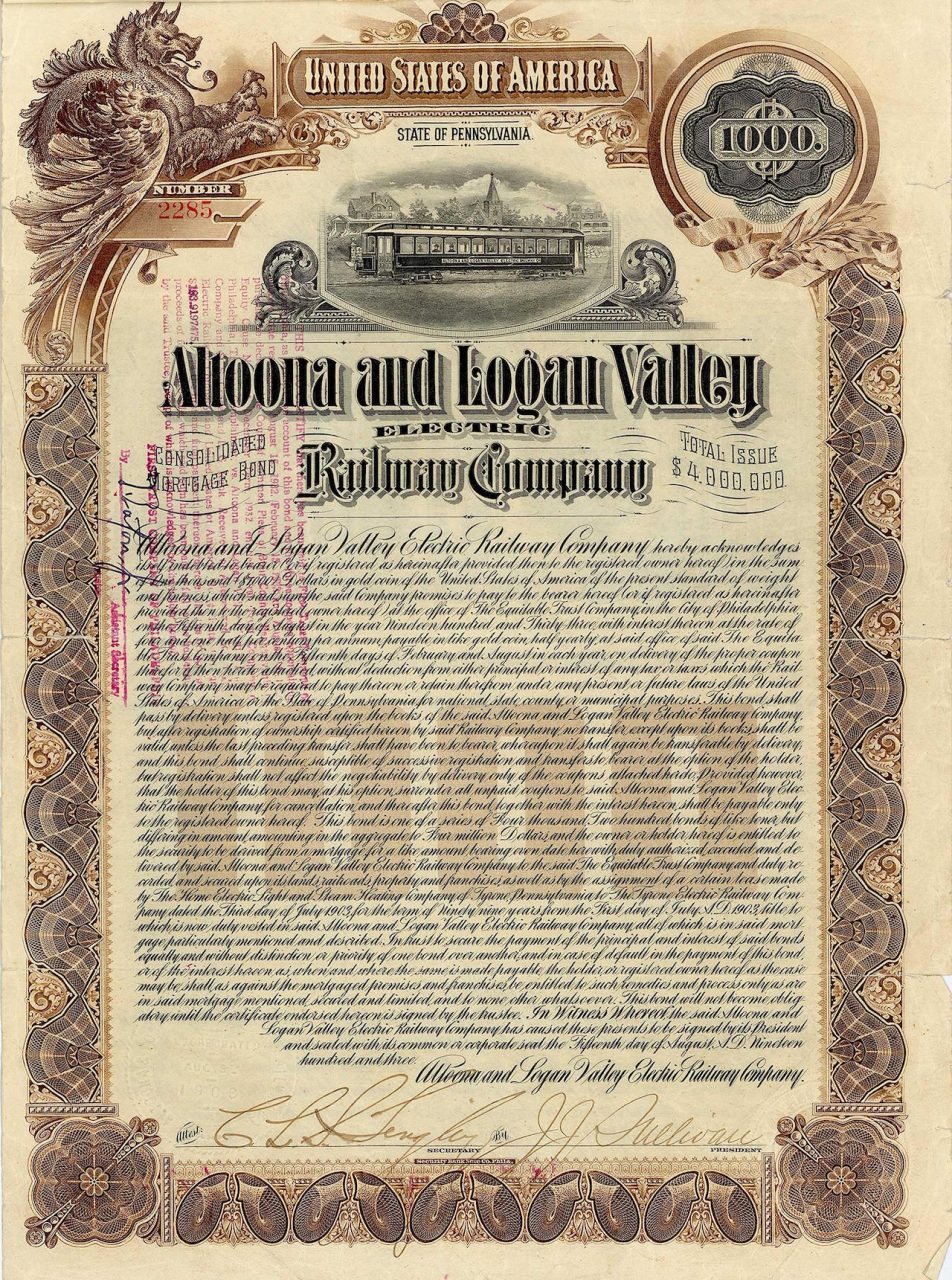 UNITED STATES OF AMERICA
STATE OF PENNSYLVANIA.
1000.
NUMBER
2285
ALTOONA AND LOGAN VALLEY ELECTRIC RAILWAY CO
Altoona and Logan Valley
ELECTRIC
Railway Company
CONSOLIDATED
MORTGAGE BOND
TOTAL ISSUE
$4,000,000.
Altoona and Logan Valley Electric Railway Company, hereby acknowledges
itself indebted to bearer (or if registered as hereinafter provided then to the registered owner hereof) in the sum
of One thousand $1000 Dollars in gold coin of the United States of America of the present standard of weight
and fineness, which said sum the said Company promises to pay to the bearer hereof (or if registered as hereinafter
provided, then to the registered owner hereof) at the office of The Equitable Trust Company, in the City of Philadelphia,
on the Fifteenth day of August in the year Nineteen hundred and Thirty three, with interest thereon at the rate of
four and one half per centum per annum, payable in like gold coin, half yearly, at said office of said The Equita-
ble Trust Company, on the fifteenth days of February and August in each year, on delivery of the proper coupon
therefor hereto attached, without deduction from either principal or interest of any tax or taxes which the Rail-
way Company may be required to pay thereon or retain therefrom under any present or future laws of the United
States of America or the State of Pennsylvania for national, state, county or municipal purposes. This bond shall
pass by delivery unless registered upon the books of the said Altoona and Logan Valley Electric Railway Company,
but after registration of ownership certified hereon by said Railway Company, no transfer, except upon its books, shall be
valid, unless the last preceding transfer shall have been to bearer, whereupon it shall again be transferable by delivery;
and this bond shall continue susceptible of successive registration and transfers to bearer at the option of the holder,
but registration shall not affect the negotiability by delivery only of the coupons attached hereto. Provided however,
that the holder of this bond may, at his option, surrender all unpaid coupons to said Altoona and Logan Valley Elec-
tric Railway Company for cancellation, and thereafter this bond, together with the interest hereon, shall be payable only
to the registered owner hereof. This bond is one of a series of Four thousand, Two hundred bonds of like tenor, but
differing in amount, amounting in the aggregate to Four million Dollars and the owner or holder hereof is entitled to
the security to be derived from a mortgage for a like amount bearing even date herewith, duly authorized, executed and de-
livered by said Altoona and Logan Valley Electric Railway Company to the said The Equitable Trust Company and duly re-
corded and secured upon its lands, railroads, property and franchises, as well as by the assignment of a certain lease made
by The Home Electric Light and Steam Heating Company of Tyrone, Pennsylvania to The Tyrone Electric Railway Com-
pany dated the Third day of July 1903, for the term of Ninety nine years from the First day of July A.D. 1903, title to
which is now duly vested in said Altoona and Logan Valley Electric Railway Company, all of which is in said mort-
gage particularly mentioned and described. In trust to secure the payment of the principal and interest of said bonds
equally and without distinction or priority of one bond over another, and in case of default in the payment of this bond
or of the interest hereon as, when and where the same is made payable, the holder, or registered owner hereof as the case
may be, shall as against the mortgaged premises and franchises, be entitled to such remedies and process only as are
in said mortgage mentioned, secured and limited, and to none other whatsoever. This bond will not become oblig-
atory until the certificate endorsed hereon is signed by the trustee. In Witness Whereof, the said Altoona and
Logan Valley Electric Railway Company has caused these presents to be signed by its President
and sealed with its common or corporate seal the Fifteenth day of August, A.D. Nineteen
hundred and three.
Altoona and Logan Valley Electric Railway Company.
Attest:
By
J. J. Sullivan
SECRETARY
PRESIDENT
Security Bank Note Co. Phila.
By
Assistant Secretary